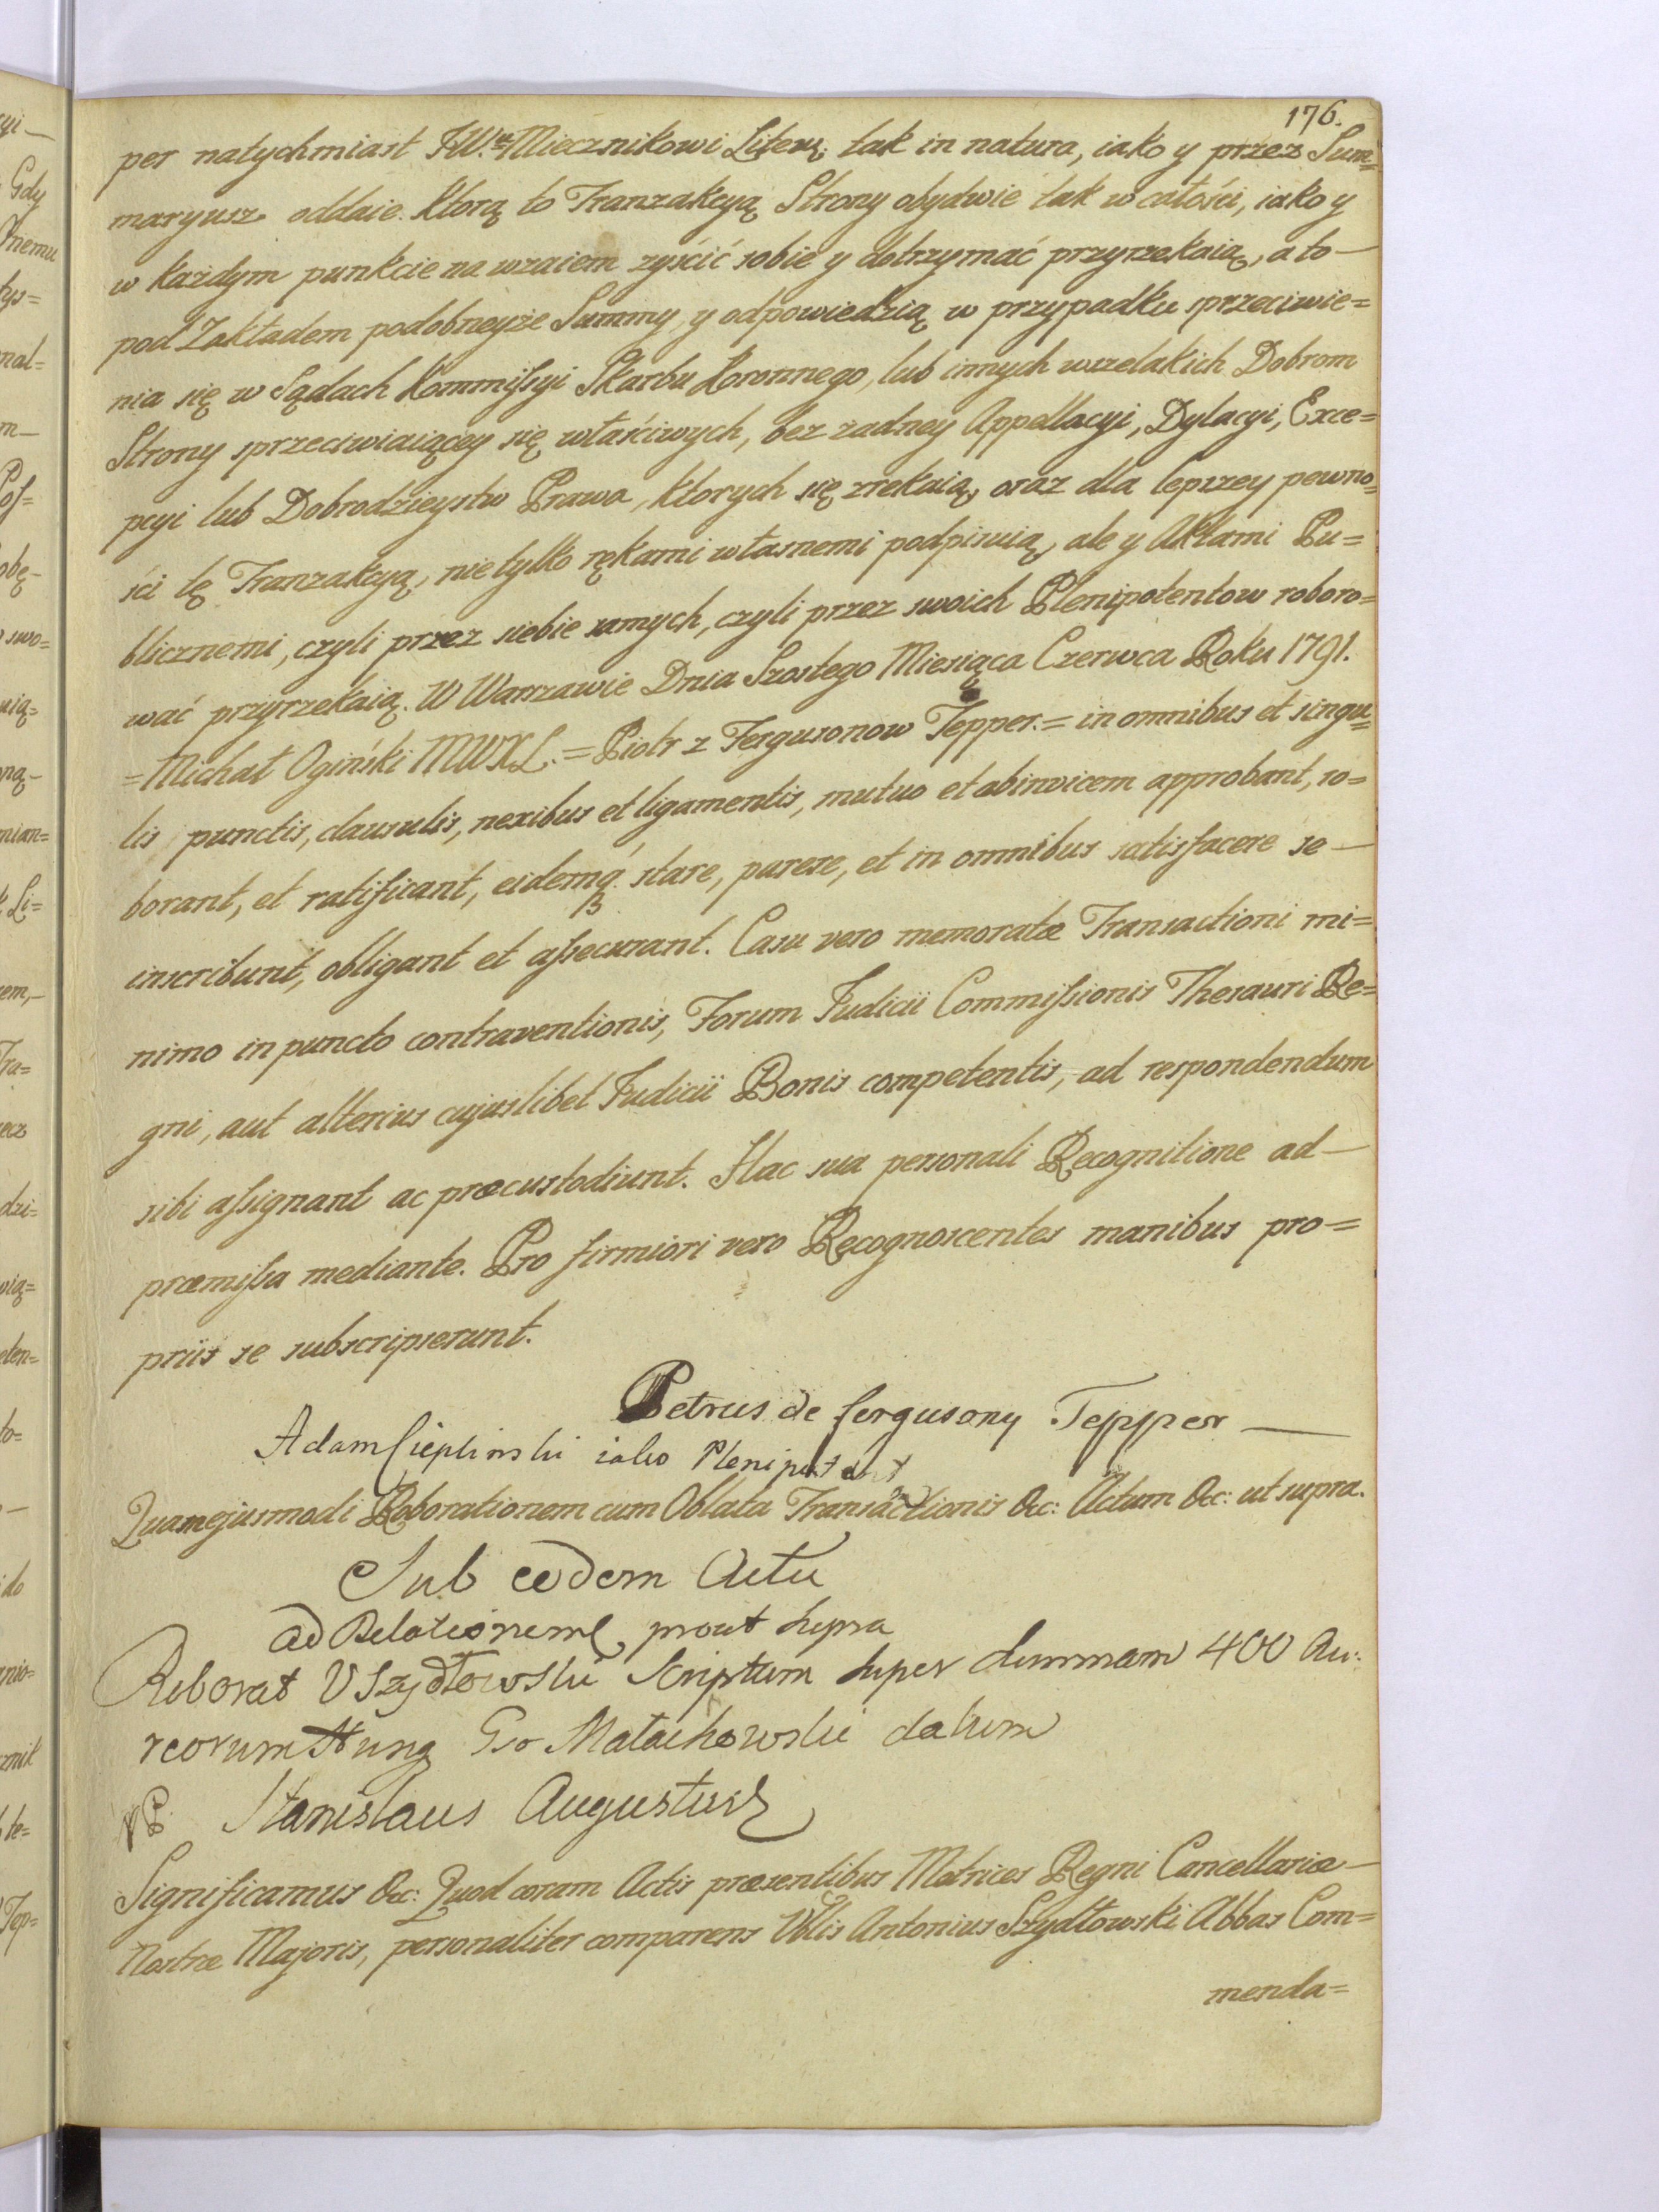 176.
per natychmiast JW.u Miecznikowi Litew: tak in natura, iako y przez Sum=
maryusz oddaie. którą to Tranzakcyą Strony obydwie tak w całości, iako y
w każdym punkcie na wzaiem zyścić sobie y dotrzymać przyrzekaią, a to —
pod Zakładem podobneyże Summy, y odpowiedzią w przypadku sprzeciwie=
nia się w Sądach Kommissyi Skarbu Koronnego, lub innych wszelakich Dobrom
Strony sprzeciwiaiącey się właściwych, bez żadney Appellacyi, Dylacyi, Exce=
pcyi lub Dobrodzieystw Prawa, ktorych się zrzekaią, oraz dla lepszey pewno=
ści tę Tranzakcyą, nie tylko rękami własnemi podpisuią, ale y Aktami Pu=
blicznemi, czyli przez siebie samych, czyli przez swoich Plenipotentow roboro=
wać przyrzekaią. W Warszawie Dnia Szostego Miesiąca Czerwca Roku 1791.
= Michał Ogiński MWXL. = Piotr z Fergusonow Tepper. = in omnibus et singu=
lis punctis, clausulis, nexibus et ligamentis, mutuo et abinvicem approbant, ro=
borant, et ratificant, eidemq stare, parere, et in omnibus satisfacere se —
inscribunt, obligant et assecurant. Casu vero memoratæ Transactioni mi=
nimo in puncto contraventionis, Forum Judicii Commissionis Thesauri Re=
gni, aut alterius cujuslibet Judicii Bonis competentis, ad respondendum
sibi assignant ac præcustodiunt. Hac sua personali Recognitione ad —
præmissa mediante. Pro firmiori vero Recognoscentes manibus pro=
priis se subscripserunt.
Petrus de fergusony Tepper —
Adam Cieplinski iako Plenipotent
Quamejusmodi Roborationem cum Oblata Transactionis &c: Actum &c: ut supra.
Sub eodem Actu
ad Relationem prout supra
Roborat V Szydłowski Scriptum super summam 400 Au:
reorum Hung Gso Małachowski datum
Stanislaus Augustus
Significamus &c: Quod coram Actis præsentibus Metrices Regni Cancellariæ —
Nostræ Majoris, personaliter comparens Vblis Antonius Szydłowski Abbas Com=
menda=